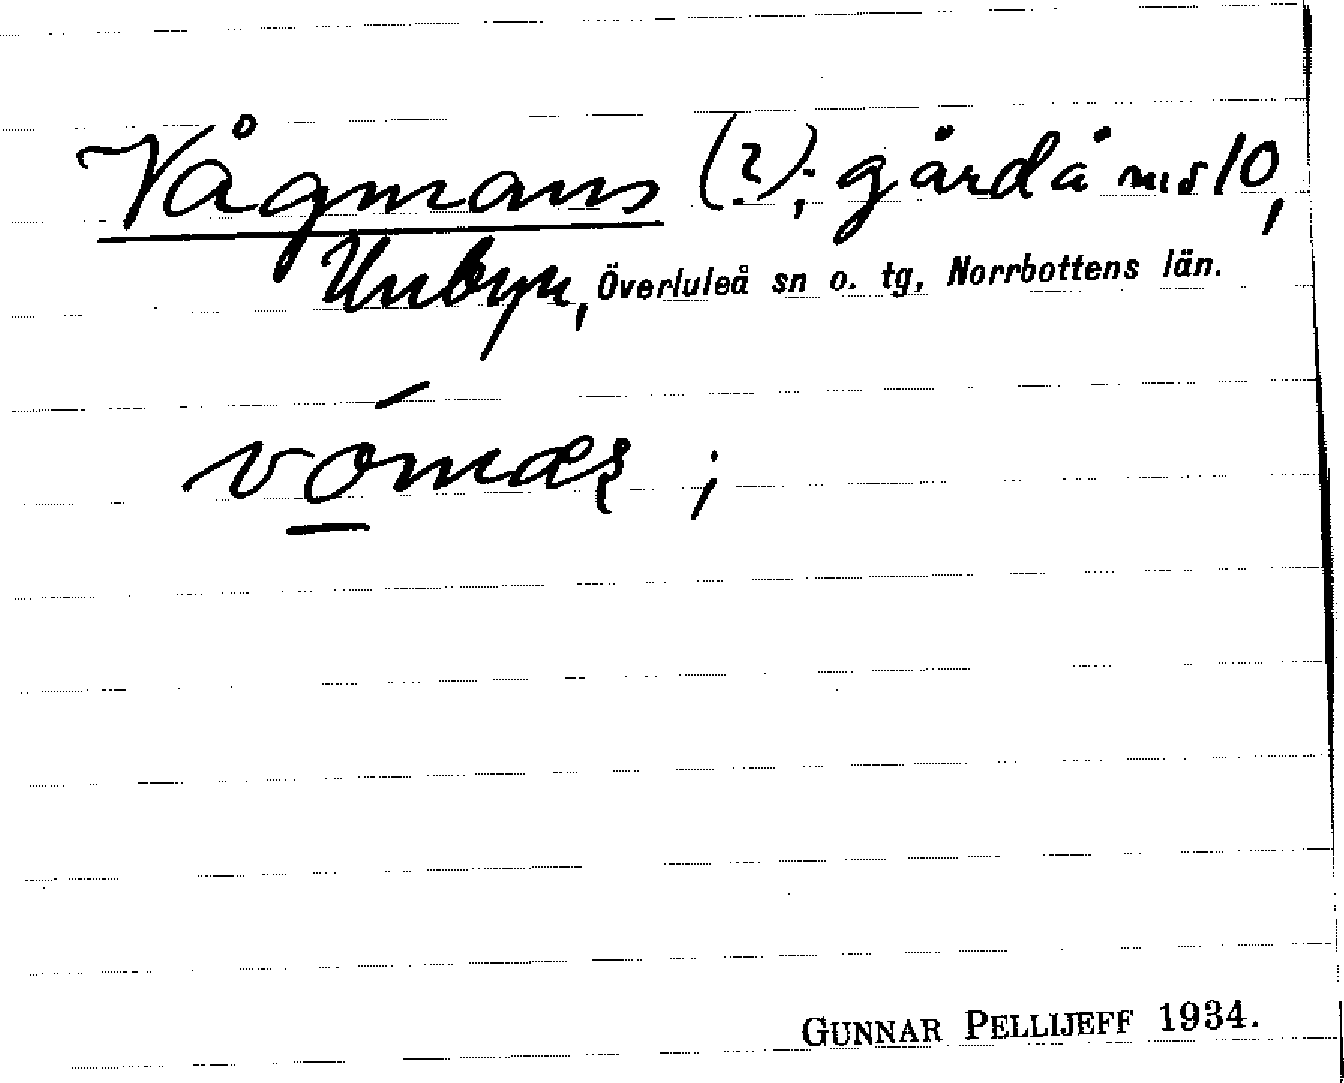 Vågmans (?); gård å nr 10,
Unbyn, Överluleå sn o. tg, Norrbottens län.
GUNNAR PELLIJEFF 1934.